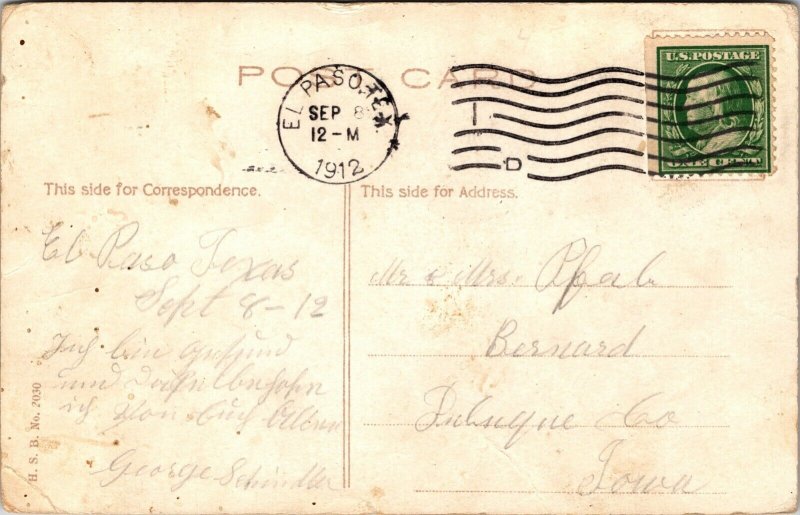 POST CARD
EL PASO, TEX.
SEP 8
12-M
1912
D
U.S. POSTAGE
ONE CENT
This side for Correspondence.
This side for Address.
El Paso Texas
Sept 8-12
Ich bin gesund
und
ich von Euch Allen
George Schindler
Mr & Mrs. Pfab
Bernard
Dubuque Co
Iowa
H. S. B. No. 2030